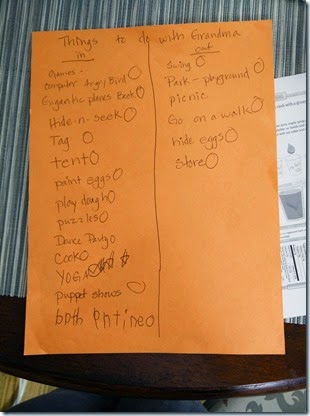 Things to do with Grandma
in
Games -
computer Angry Bird
Gigantic planes Book
Hide-n-seek
Tag
tent
paint eggs
play dough
puzzles
Dance Party
Cook
YOGA
puppet shows
both
out
Swing
Park - playground
picnic
Go on a walk
hide eggs
store